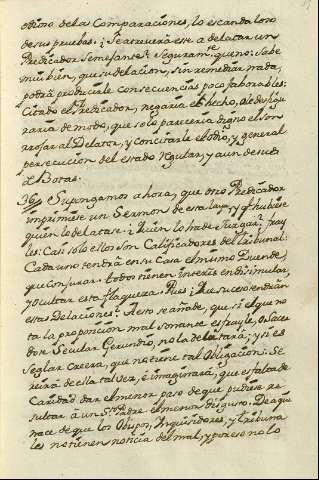 odioso de las Comparaciones, lo escandaloso
de sus pruebas. ¿Se atreverá ese a delatar un
Predicador Semejante? Seguramte. que no: Sabe
mui bien, que su delacion, sin remediar nada,
podrá producirle consecuencias poco faborables:
Citado el Predicador, negaria el hecho, ò le desfigu
raria de modo, que solo pareceria digno el Son
rrojar al Delator, y concitarle el odio, y general
persecucion del estado Regular, y aun de sus
Botas.
36 Supongamos ahora, que otro Predicador
imprimiese un Sermon de esta laya, y qe. hubiese
quien lo delatase: ¿Quien lo ha de Juzgar? fray
les: Casi solo ellos son Calificadores del Tribunal:
Cada uno tendrá en su Casa el mismo Duende,
que conjurar: todos tienen interés en disimular,
y ocultar esta flaqueza. Pues ¿Que suceso tendrán
estas Delaciones? A esto se añade, que si el que no
ta la proposicion mal sonante es frayle, ò Sacer
dote Secular Gerundio, no la delatará; y si es
Seglar Creera, que no tiene tal obligacion. Se
reirá de ella tal vez, è imaginará, que es falta de
Caridad dar el menor paso de que pudiese re
sultar à un Sto. Pdre. el menor disgusto. De aqui
nace de que los Obispos, Inquisidores, y tribuna
les no tienen noticia del mal, y por eso no lo